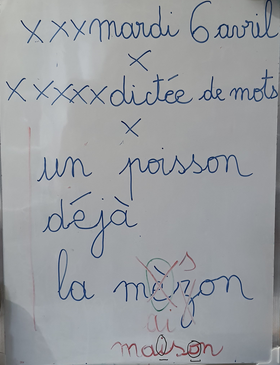 x x x mardi 6 avril
x
x x x x x dictée de mots
x
un poisson
déjà
la mèzon
s
ai
maison